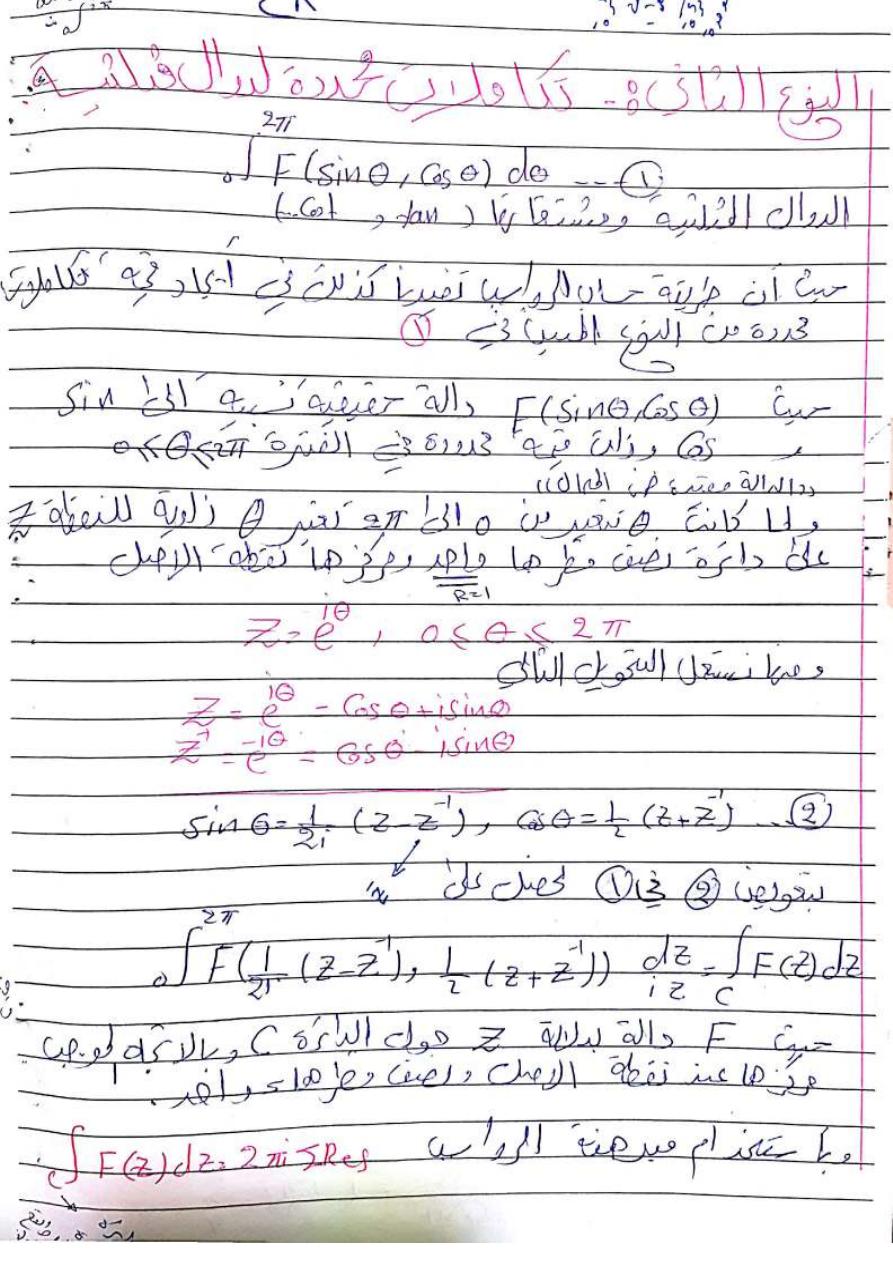 النوع الثاني :- تكاملات محددة لدوال مثلثية
∫₀^2π F(sinθ, cosθ) dθ --- ①
الدوال المثلثية ومشتقاتها (tan و cot..)
حيث أن طريقة حساب الرواسب تفيدنا كذلك في ايجاد قيم تكاملات
محددة من النوع المبين في ①
حيث F(sinθ, cosθ) دالة حقيقية نسبية الى sin
و cos وذات قيمة محددة في الفترة 0≤θ≤2π
ولما كانت θ تتغير من 0 الى 2π تعتبر θ زاوية للنقطة Z
على دائرة نصف قطرها واحد ومركزها نقطة الاصل
R=1
Z = e^iθ , 0 ≤ θ ≤ 2π
ومنها نستعمل التحويل التالي
Z = e^iθ = cosθ + i sinθ
Z⁻¹ = e^-iθ = cosθ - i sinθ
sinθ = 1/2i (Z - Z⁻¹) , cosθ = 1/2 (Z + Z⁻¹) -- ②
بتعويض ② في ① نحصل على
∫₀^2π F(1/2i (Z - Z⁻¹), 1/2 (Z + Z⁻¹)) dZ/iZ = ∫_C F(Z) dZ
حيث F دالة بدلالة Z حول الدائرة C وبالاتجاه الموجب
مركزها عند نقطة الاصل ونصف قطرها واحد.
وباستخدام مبرهنة الرواسب ∫_C F(Z) dZ = 2πi ΣRes